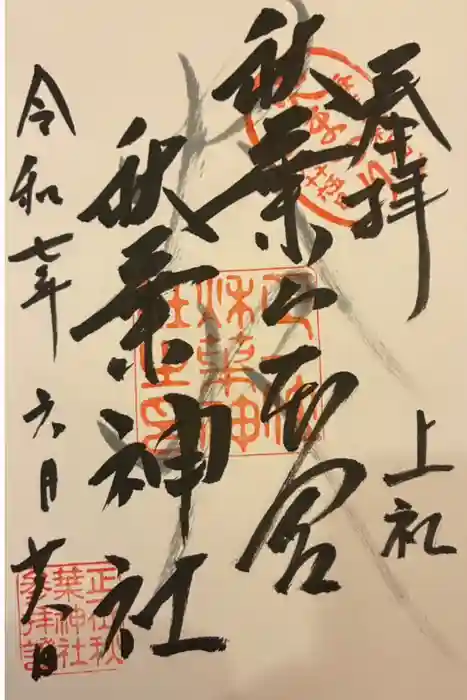 奉拝
上社
秋葉山本宮
秋葉神社
令和七年六月廿八日
正一位
秋葉神
社之印
正一位秋
葉神社
参拝證